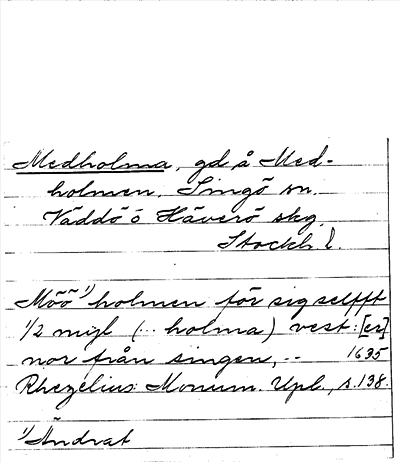 Medholma, gd å Med-
holmen. Singö sn.
Väddö o Häverö skg.
Stockh l.
Möö ¹⁾ holmen för sig selfft
1/2 mijl (.. holma) vest: [er]
nor från singen, -- 1635
Rhezelius Monum. Upl., s. 138.
¹⁾ Ändrat